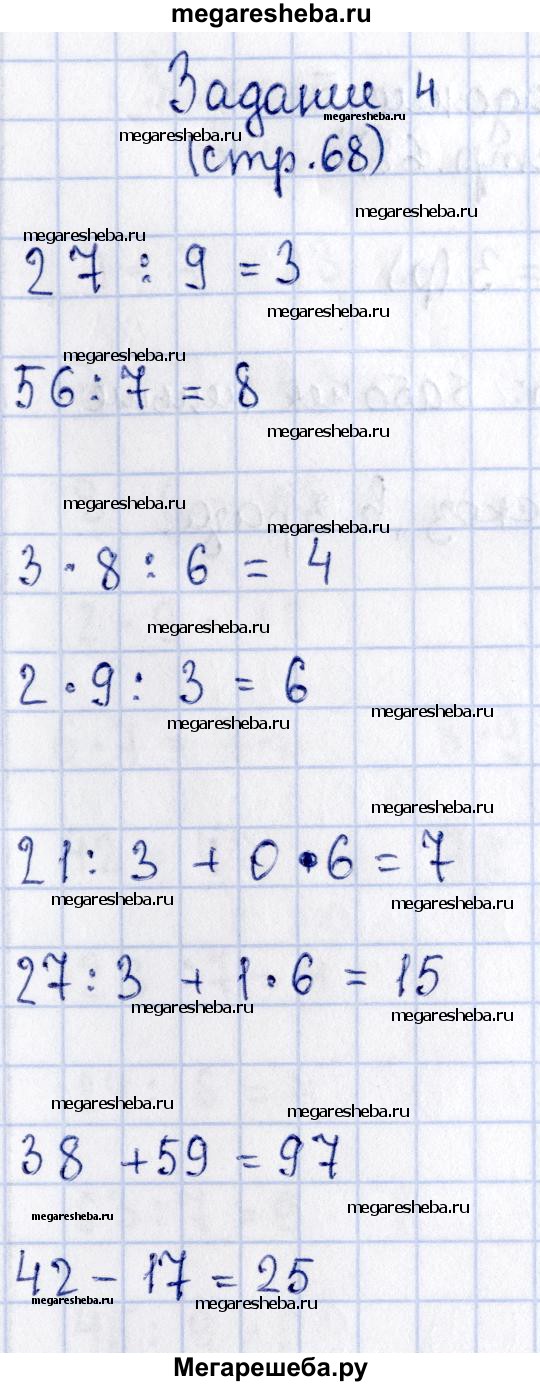 megaresheba.ru
Задание 4
megaresheba.ru
megaresheba.ru
(стр.68)
megaresheba.ru
megaresheba.ru
27 : 9 = 3
megaresheba.ru
megaresheba.ru
56 : 7 = 8
megaresheba.ru
megaresheba.ru
megaresheba.ru
3 · 8 : 6 = 4
megaresheba.ru
2 · 9 : 3 = 6
megaresheba.ru
megaresheba.ru
megaresheba.ru
21 : 3 + 0 · 6 = 7
megaresheba.ru
megaresheba.ru
27 : 3 + 1 · 6 = 15
megaresheba.ru
megaresheba.ru
megaresheba.ru
megaresheba.ru
38 + 59 = 97
megaresheba.ru
megaresheba.ru
42 - 17 = 25
megaresheba.ru
megaresheba.ru
Мегарешеба.ру